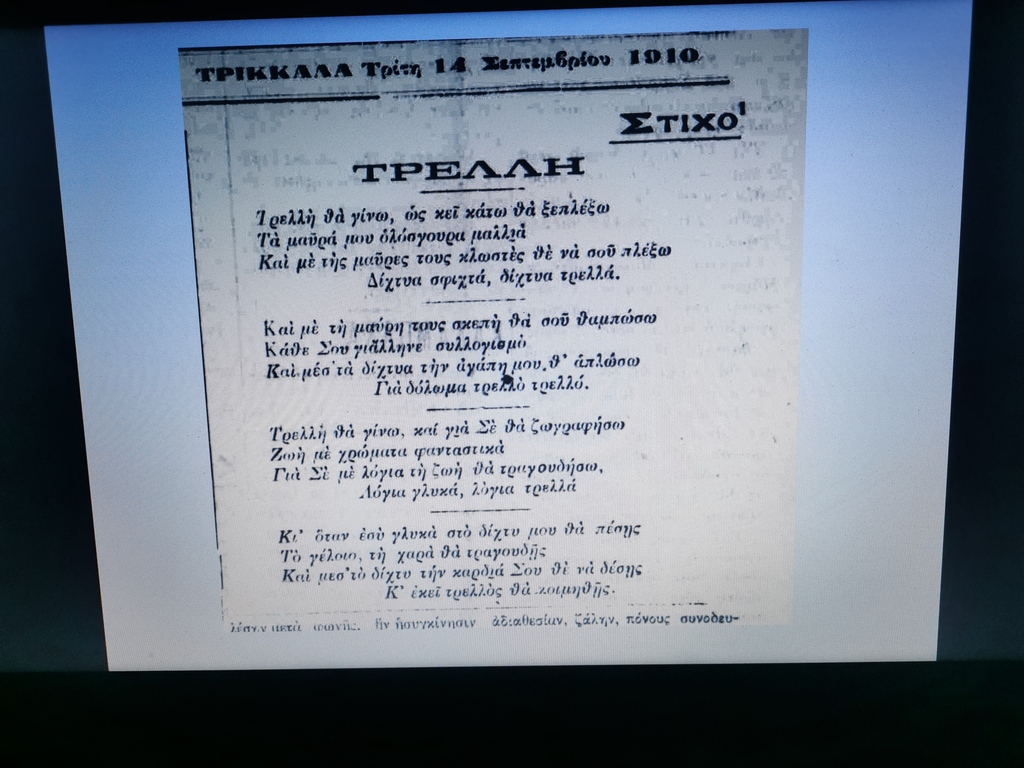 ΤΡΙΚΚΑΛΑ Τρίτη 14 Σεπτεμβρίου 1910
ΣΤΙΧΟΙ
ΤΡΕΛΛΗ
Τρελλὴ θὰ γίνω, ὡς κεῖ κάτω θὰ ξεπλέξω
Τὰ μαῦρά μου ὁλόσγουρα μαλλιὰ
Καὶ μὲ τῆς μαῦρες τους κλωστὲς θὲ νὰ σοῦ πλέξω
Δίχτυα σφιχτά, δίχτυα τρελλά.
Καὶ μὲ τὴ μαύρη τους σκεπὴ θὰ σοῦ θαμπώσω
Κάθε Σου γιἄλληνε συλλογισμὸ
Καὶ μέσ' τὰ δίχτυα τὴν ἀγάπη μου θ' ἁπλώσω
Γιὰ δόλωμα τρελλὸ τρελλό.
Τρελλὴ θὰ γίνω, καί γιὰ Σὲ θὰ ζωγραφήσω
Ζωὴ μὲ χρώματα φανταστικὰ
Γιὰ Σὲ μὲ λόγια τὴ ζωὴ θὰ τραγουδήσω,
Λόγια γλυκά, λόγια τρελλά
Κι' ὅταν ἐσὺ γλυκὰ στὸ δίχτυ μου θὰ πέσῃς
Τὸ γέλοιο, τὴ χαρὰ θὰ τραγουδῇς
Καὶ μεσ' τὸ δίχτυ τὴν καρδιά Σου θὲ νὰ δέσῃς
Κ' ἐκεῖ τρελλὸς θὰ κοιμηθῇς.
μετὰ φωνῆς. ἡσυχίνησιν ἀδιαθεσίαν, ζάλην, πόνους συνοδευ-